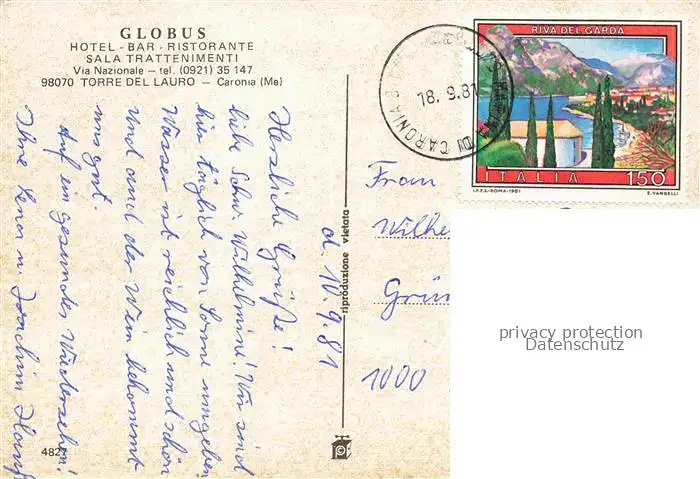 GLOBUS
HOTEL - BAR - RISTORANTE
SALA TRATTENIMENTI
Via Nazionale — tel. (0921) 35 147
98070 TORRE DEL LAURO — Caronia (Me)
d. 10.9.81
Herzliche Grüße!
liebe Schw. Wilhelmine! Wir sind
hier täglich von Sonne umgeben
Wasser ist reichlich und schön
und auch der Wein bekommt
uns gut.
Auf ein gesundes Wiedersehen!
Ihre Lena u. Joachim
4827
riproduzione vietata
DI CARONIA
18.9.81
RIVA DEL GARDA
ITALIA 150
I.P.Z.S.-ROMA-1981 E. VANGELLI
Frau
Wilhe
Grün
1000
privacy protection
Datenschutz